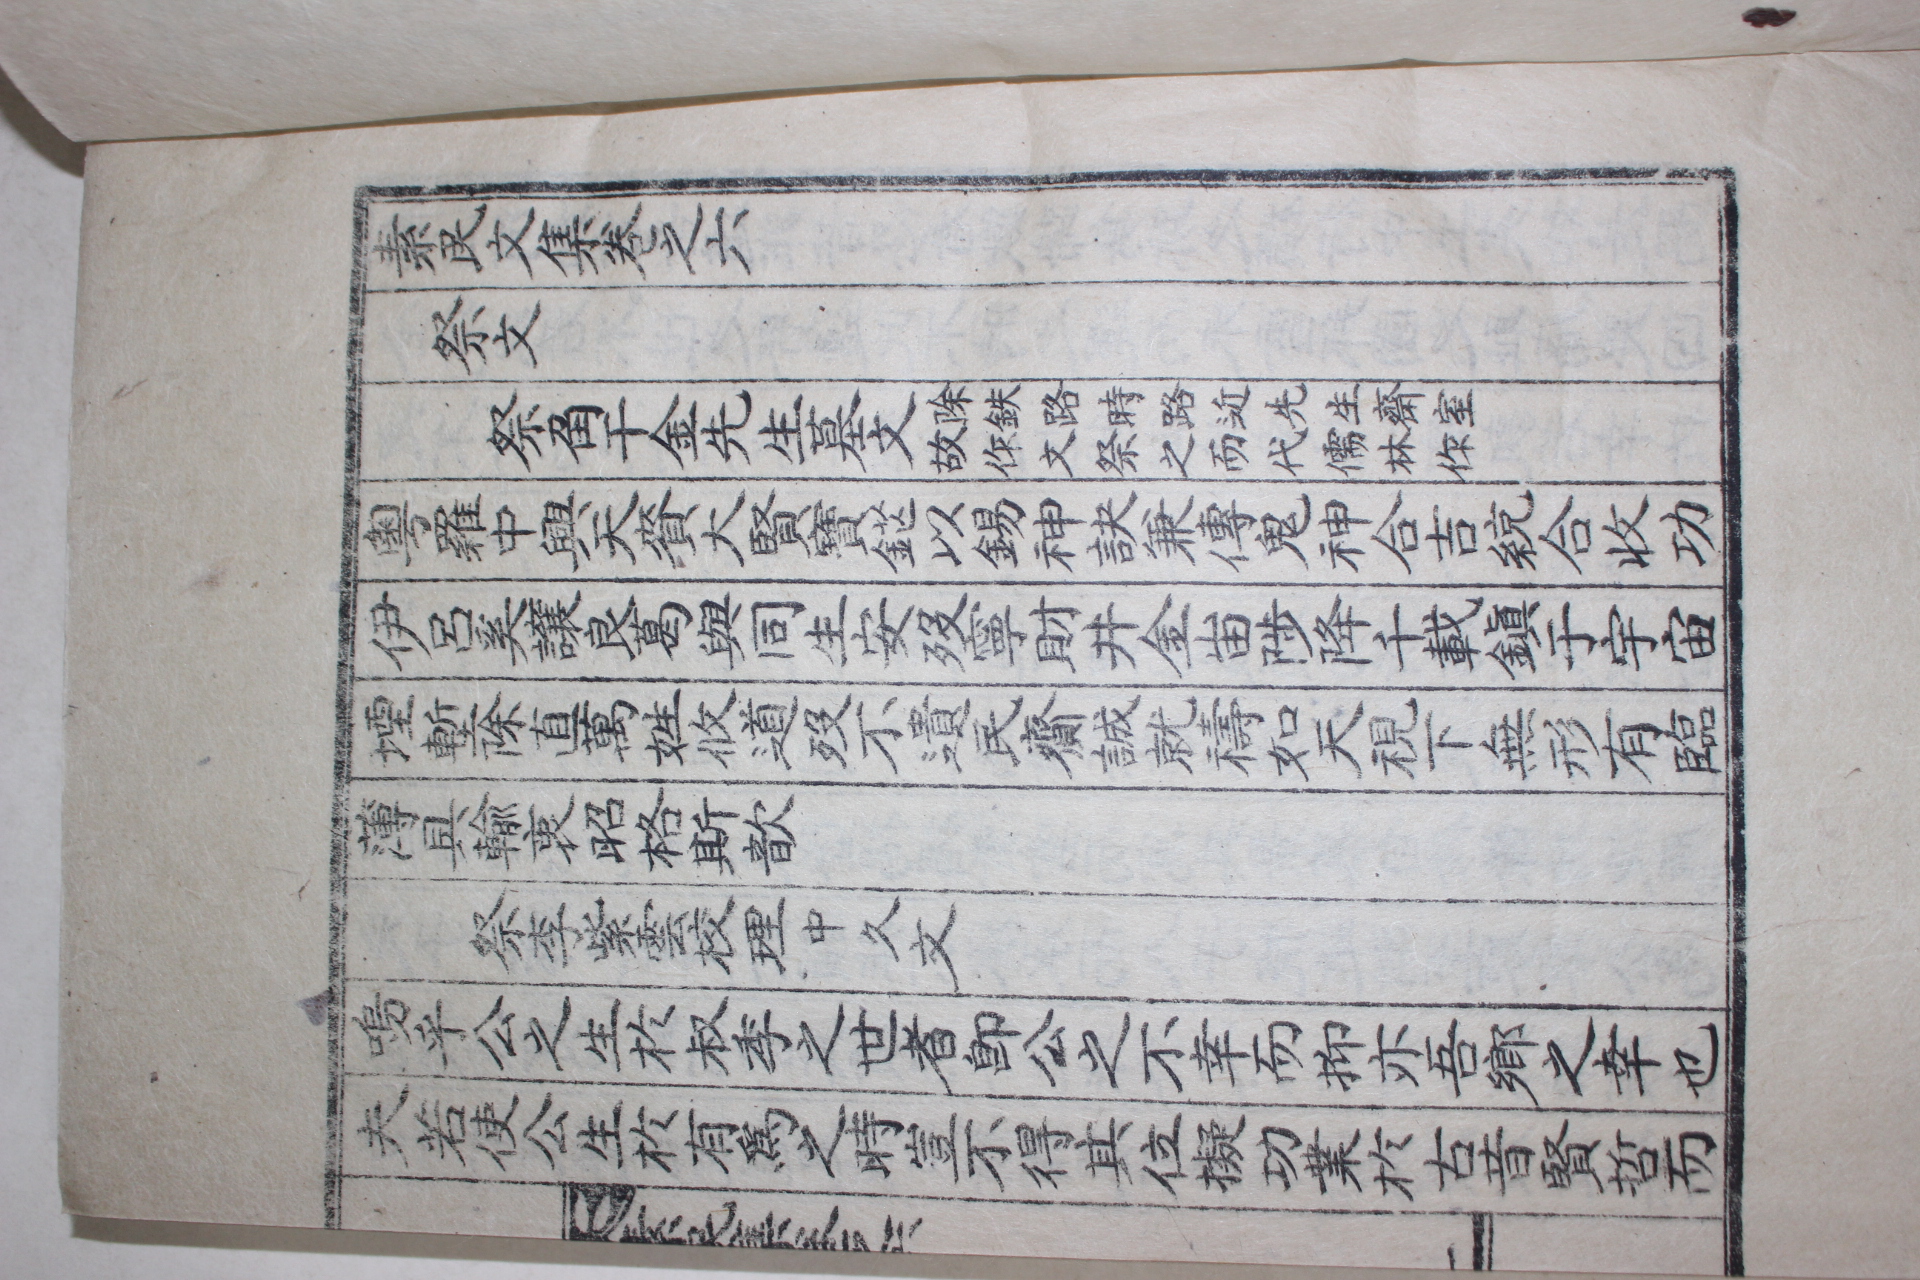 素民文集卷之六
祭文
祭角千金先生墓文 除鉄路時路近先生齋室
故作文祭之而代儒林作
粤羅中興天賚大賢寶鎹以錫神訣兼傳鬼神合吉統合收功
伊呂奚讓良葛與同生安歿寧財井金峀陟降千載鎭于宇宙
堙塹除道萬姓攸道歿不遺民齎誠就禱如天視下無形有臨
薄具輸衷昭格斯歆
祭李紫雲校理 中久文
嗚乎公之生於叔季之世者卽公之不幸而抑亦吾鄕之幸也
夫若使公生於有爲之時豈不得其位擬功業於古昔賢哲而
素民集卷之六
一